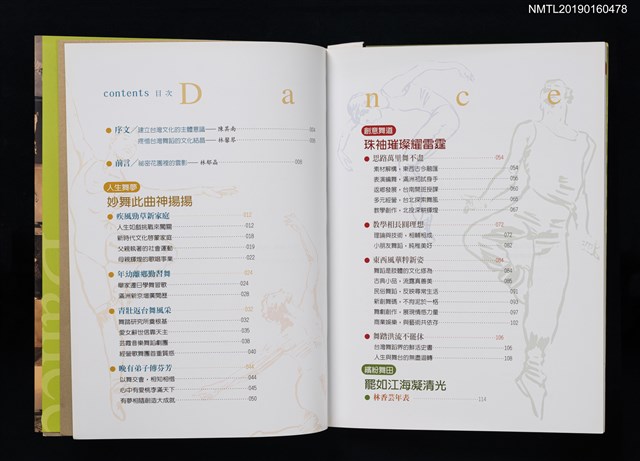 NMTL20190160478
contents 目次
Dance
序文／建立台灣文化的主體意識——陳其南
傳遞台灣舞蹈的文化結晶——林馨琴
004
前言／祕密花園裡的靈影——林郁晶
008
人生舞夢
妙舞此曲神揚揚
疾風勁草新家庭 012
人生如戲挑戰來闖關 012
新時代文化啟蒙家庭 018
父親執著的社會運動 019
母親鍾煌的歌唱事業 022
年幼離鄉勤習舞 024
舉家遷日學舞習歌 024
滿洲新京增廣閱歷 028
青壯返台舞風采 032
舞蹈研究所奠根基 032
愛女辭世信靠天主 035
芸霞音樂舞蹈劇團 038
經營歌舞團首重質感 040
晚有弟子傳芬芳 044
以舞交會，相知相惜 044
心中有愛桃李滿天下 045
有夢相隨創造大成就 050
創意舞道
珠袖璀璨耀雷霆
思路萬里舞不盡 054
素材解構，東西古今融匯 054
表演編舞，滿洲初試身手 056
返鄉發展，台南開班授課 060
多元經營，台北探索舞風 065
教學創作，北投深耕輝煌 067
教學相長圓理想 072
理論與技術，相輔相成 072
小朋友舞蹈，純稚美好 082
東西風華粹新姿 088
舞蹈是肢體的文化修為 088
古典小品，流露真善美 090
民俗舞蹈，反映尋常生活 091
新創舞碼，不拘泥於一格 093
舞劇創作，展現情感力量 098
商業娛樂，與藝術共依存 102
舞蹈洪流不罷休 106
台灣舞蹈界的鮮活史畫 106
人生與舞台的無盡迴轉 108
繽紛舞田
罷如江海凝清光
林香芸年表 114